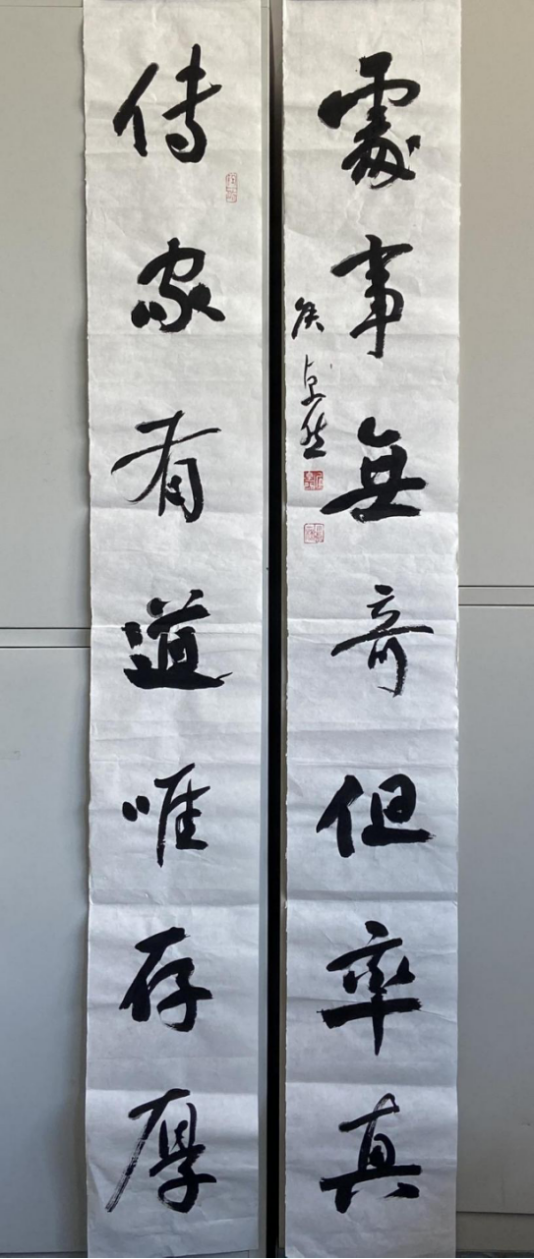 傳家有道唯存厚
處事無奇但率真
侯卓然